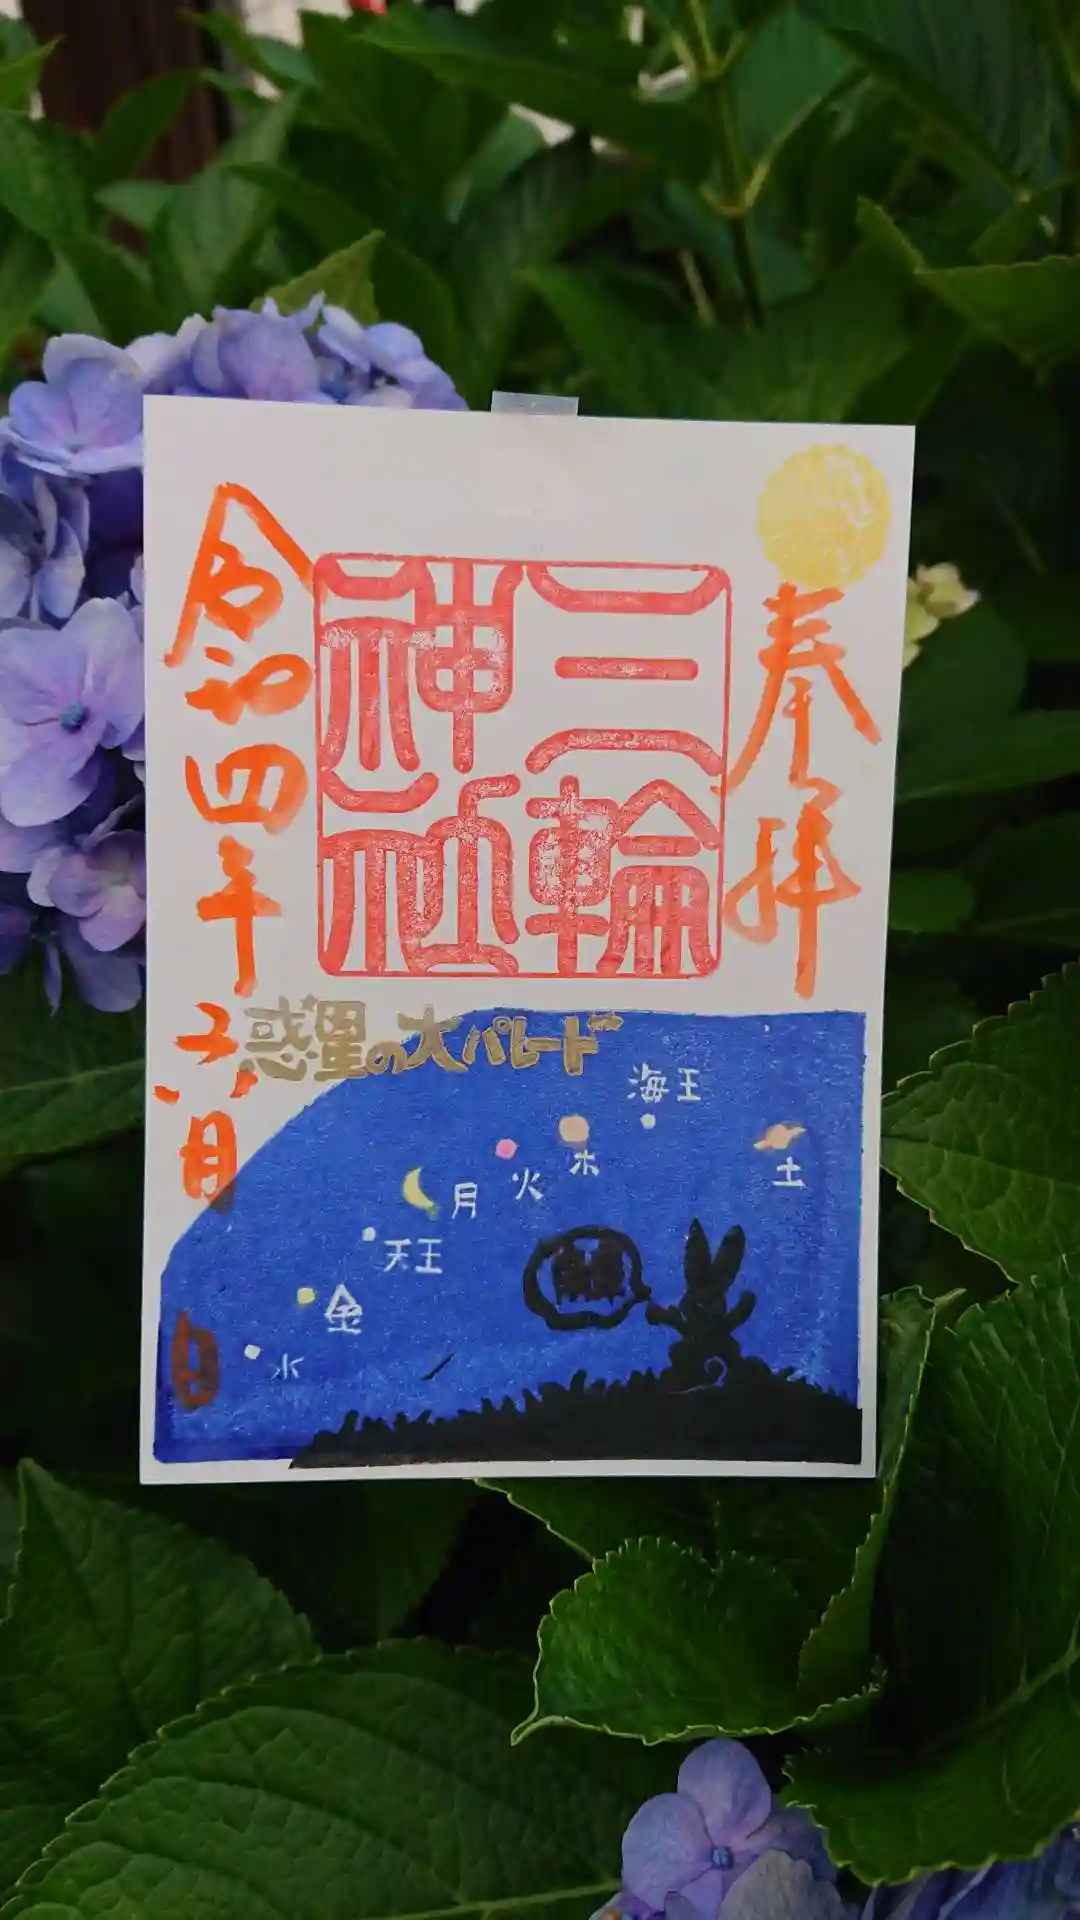 奉拝
三輪
神社
令和四年六月
日
惑星の大パレード
海王
土
木
火
月
天王
金
水